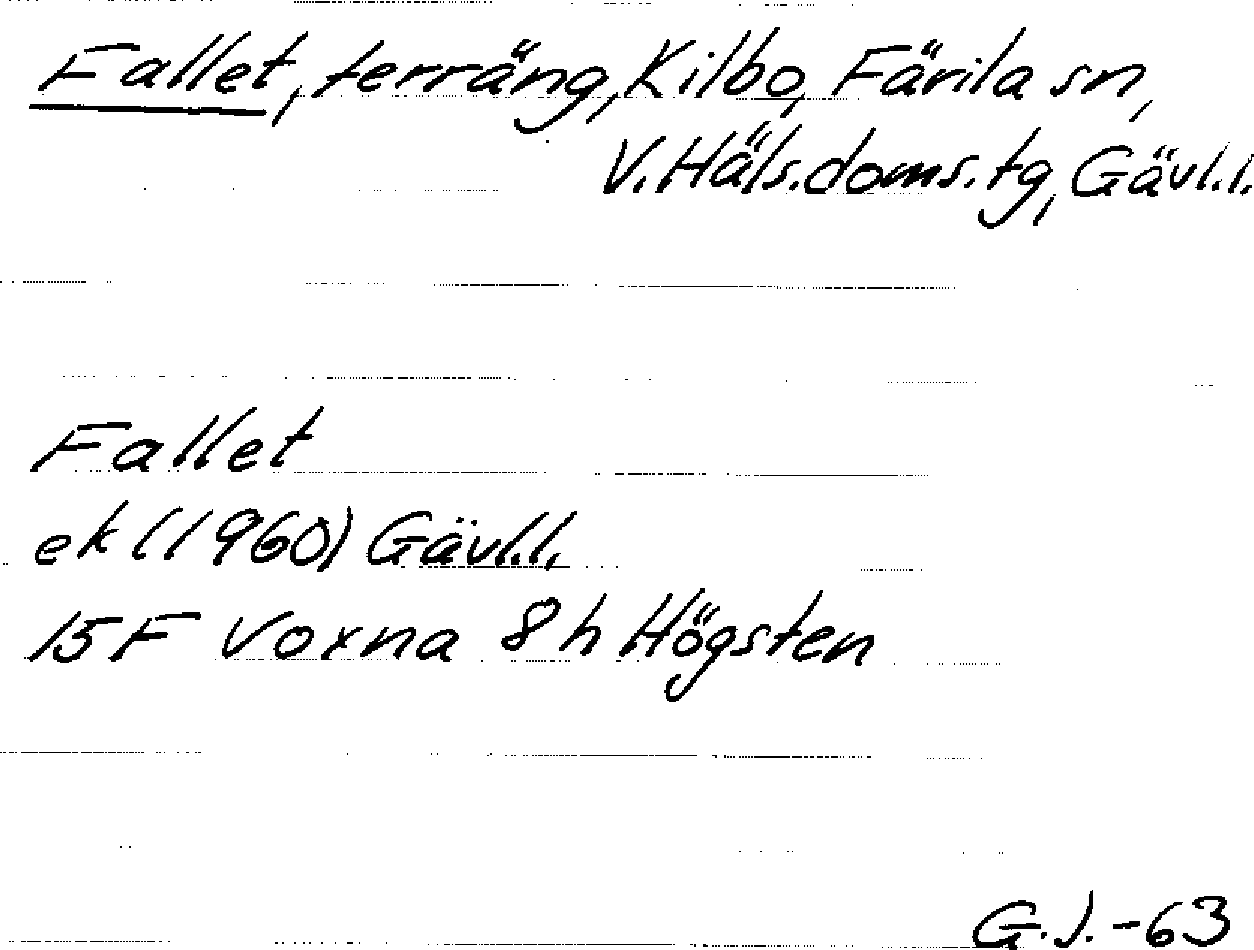 Fallet, terräng, Kilbo, Färila sn,
V. Häls. doms. tg, Gävl.l.
Fallet
ek (1960) Gävl.l.
15F Voxna 8h Högsten
G.J. -63